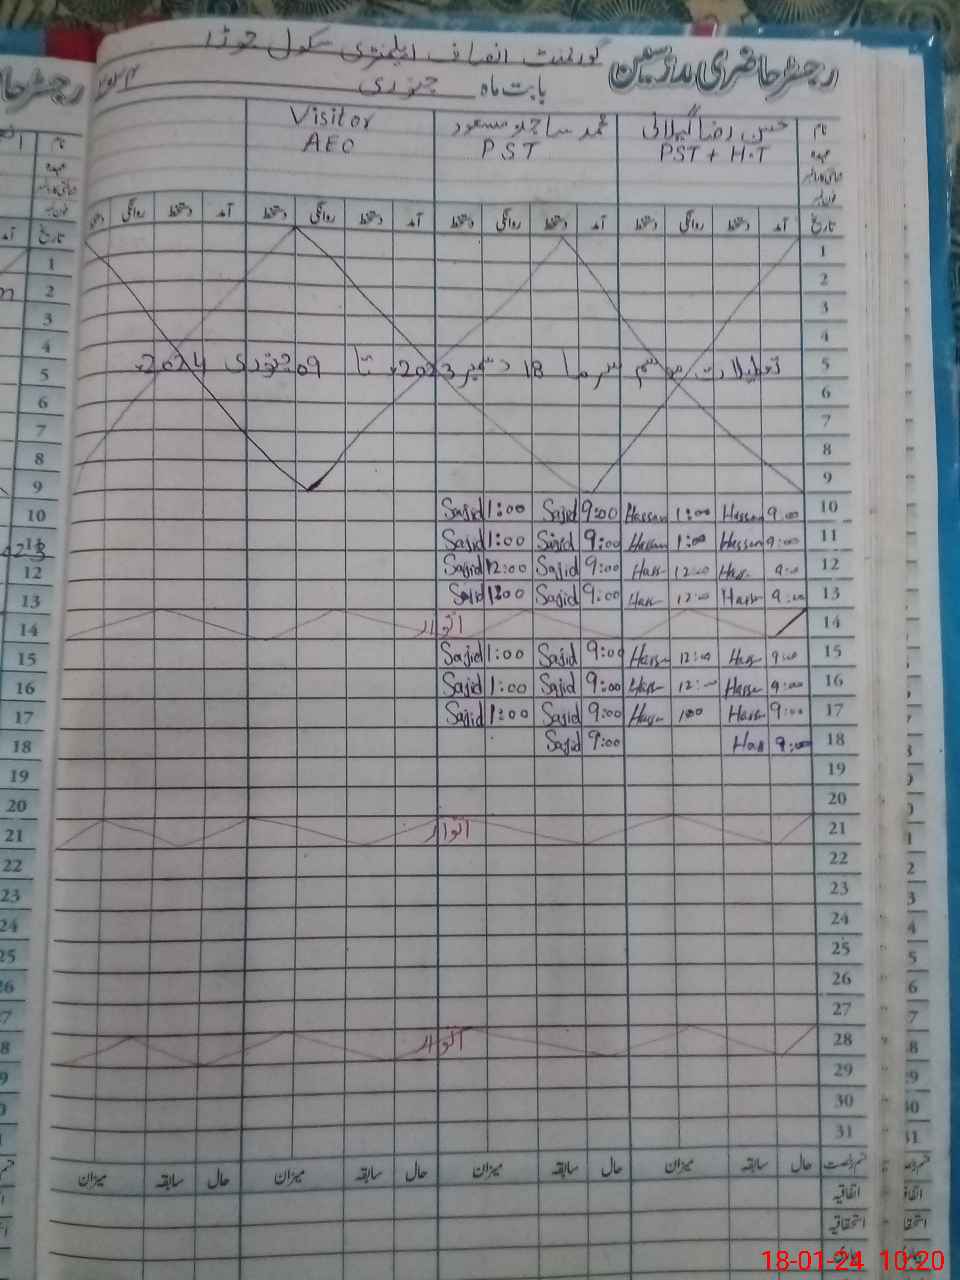 رجسٹر حاضری مدرسین گورنمنٹ انصاف ایلیمنٹری سکول
بابت ماہ جنوری
نام حسن رضا گیلانی محمد ساجد مسعود Visitor
عہدہ PST + H.T PST AEO
تاریخ آمد دستخط روانگی دستخط آمد دستخط روانگی دستخط آمد دستخط روانگی دستخط آمد دستخط روانگی دستخط
1
2
3
4
5 تعطیلات موسم سرما 18 دسمبر 2023ء تا 09 جنوری 2024ء
6
7
8
9
Sajid 1:00 Sajid 9:00 Hassan 1:00 Hassan 9:00 10
Sajid 1:00 Sajid 9:00 Hassan 1:00 Hassan 9:00 11
Sajid 12:00 Sajid 9:00 Hass 12:00 Hass 9:00 12
Sajid Sajid 9:00 Hass 12:00 Hass 9:00 13
14 اتوار
Sajid 1:00 Sajid 9:00 Hass 12:00 Hass 9:00 15
Sajid 1:00 Sajid 9:00 Hass 12:00 Hass 9:00 16
Sajid 1:00 Sajid 9:00 Hass 1:00 Hass 9:00 17
Sajid 9:00 Hass 9:00 18
19
20
21 اتوار
22
23
24
25
26
27
28 اتوار
29
30
31
قسم رخصت حال سابقہ میزان حال سابقہ میزان حال سابقہ میزان
اتفاقیہ
استحقاقیہ
18-01-24 10:20